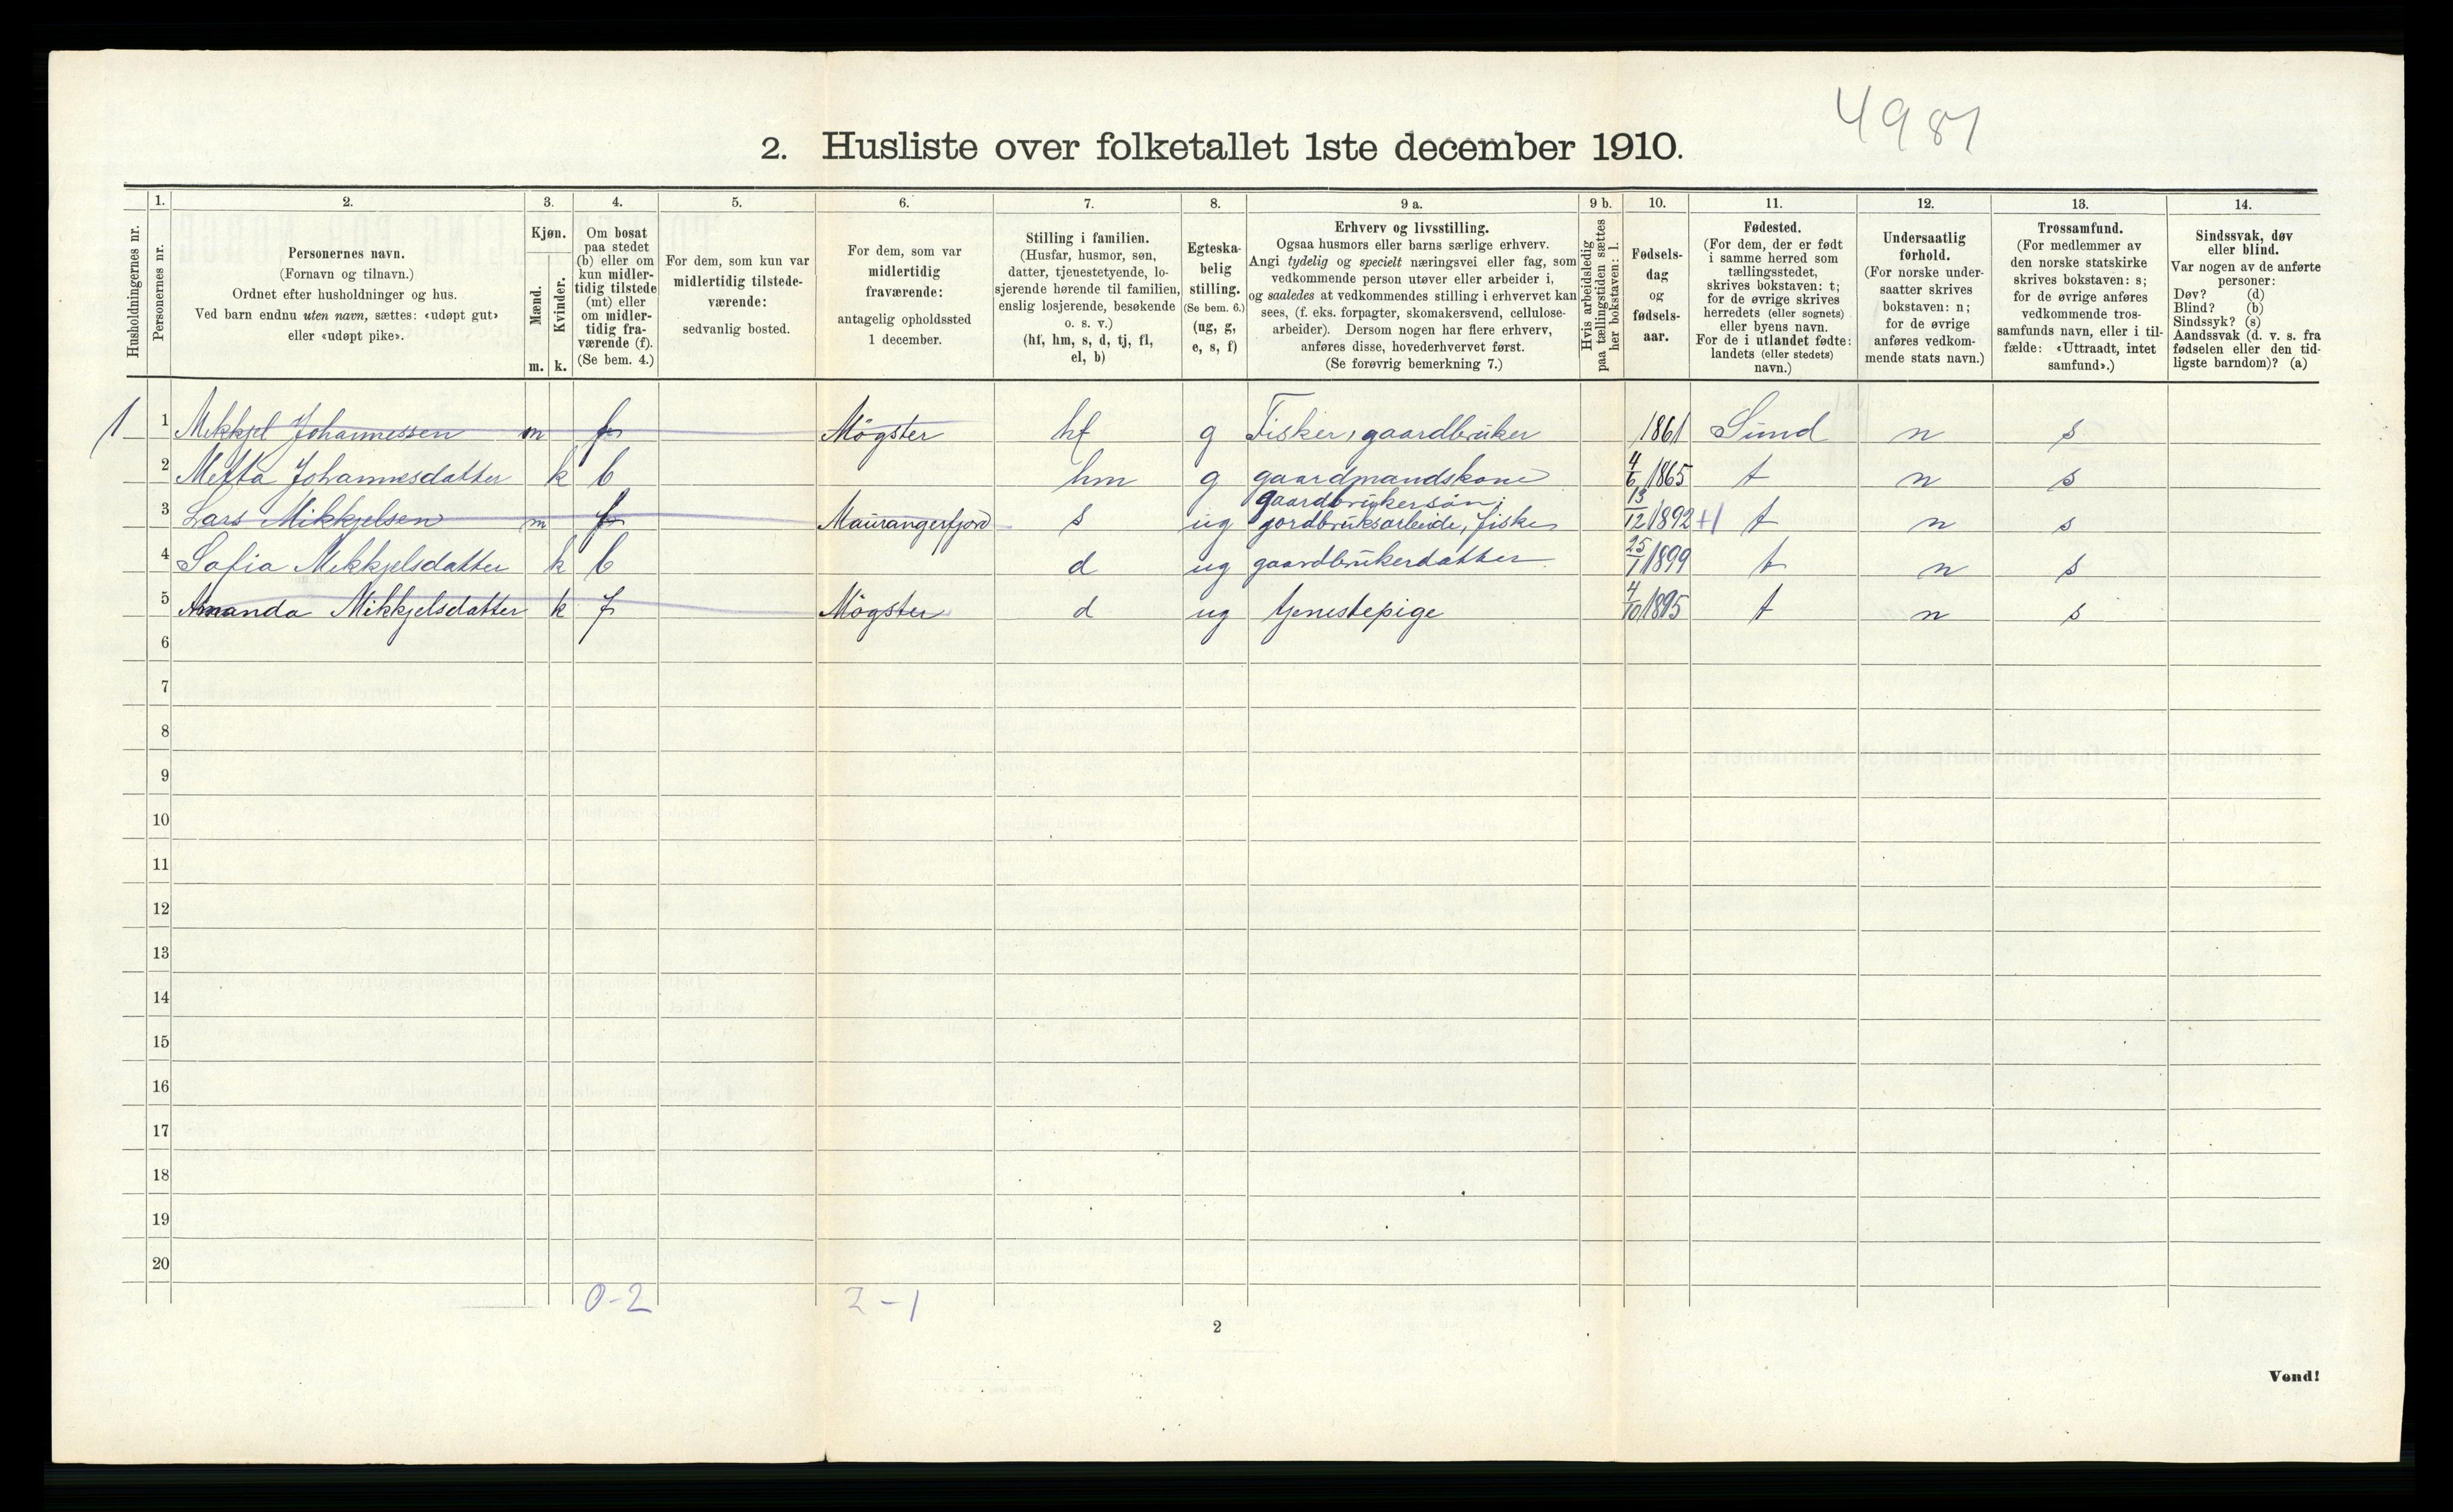 4981
2. Husliste over folketallet 1ste december 1910.
Husholdningernes nr.
1. Personernes nr.
2. Personernes navn.
(Fornavn og tilnavn.)
Ordnet efter husholdninger og hus.
Ved barn endnu uten navn, sættes: «udøpt gut»
eller «udøpt pike».
3. Kjøn.
Mænd. Kvinder.
m. k.
4. Om bosat
paa stedet
(b) eller om
kun midler-
tidig tilstede
(mt) eller
om midler-
tidig fra-
værende (f).
(Se bem. 4.)
5. For dem, som kun var
midlertidig tilstede-
værende:
sedvanlig bosted.
6. For dem, som var
midlertidig
fraværende:
antagelig opholdssted
1 december.
7. Stilling i familien.
(Husfar, husmor, søn,
datter, tjenestetyende, lo-
sjerende hørende til familien,
enslig losjerende, besøkende
o. s. v.)
(hf, hm, s, d, tj, fl,
el, b)
8. Egteska-
belig
stilling.
(Se bem. 6.)
(ug, g,
e, s, f)
9 a. Erhverv og livsstilling.
Ogsaa husmors eller barns særlige erhverv.
Angi tydelig og specielt næringsvei eller fag, som
vedkommende person utøver eller arbeider i,
og saaledes at vedkommendes stilling i erhvervet kan
sees, (f. eks. forpagter, skomakersvend, cellulose-
arbeider). Dersom nogen har flere erhverv,
anføres disse, hovederhvervet først.
(Se forøvrig bemerkning 7.)
9 b. Hvis arbeidsledig
paa tællingstiden sættes
her bokstaven: l.
10. Fødsels-
dag
og
fødsels-
aar.
11. Fødested.
(For dem, der er født
i samme herred som
tællingsstedet,
skrives bokstaven: t;
for de øvrige skrives
herredets (eller sognets)
eller byens navn.
For de i utlandet fødte:
landets (eller stedets)
navn.)
12. Undersaatlig
forhold.
(For norske under-
saatter skrives
bokstaven: n;
for de øvrige
anføres vedkom-
mende stats navn.)
13. Trossamfund.
(For medlemmer av
den norske statskirke
skrives bokstaven: s;
for de øvrige anføres
vedkommende tros-
samfunds navn, eller i til-
fælde: «Uttraadt, intet
samfund».)
14. Sindssvak, døv
eller blind.
Var nogen av de anførte
personer:
Døv? (d)
Blind? (b)
Sindssyk? (s)
Aandssvak (d. v. s. fra
fødselen eller den tid-
ligste barndom)? (a)
1 1 Mikkjel Johannessen m f Mögster hf g Fisker, gaardbruker 1861 Sund n s
2 Metta Johannesdatter k b hm g gaardmandskone 4/6 1865 t n s
3 Lars Mikkjelsen m f Maurangerfjord s ug gaardbrukersön; jordbruksarbeide, fisker 13/12 1892 +1 t n s
4 Sofia Mikkjelsdatter k b d ug gaardbrukerdatter 25/1 1899 t n s
5 Amanda Mikkjelsdatter k f Mögster d ug tjenestepige 4/10 1895 t n s
6
7
8
9
10
11
12
13
14
15
16
17
18
19
20
0-2 2-1
2
Vend!